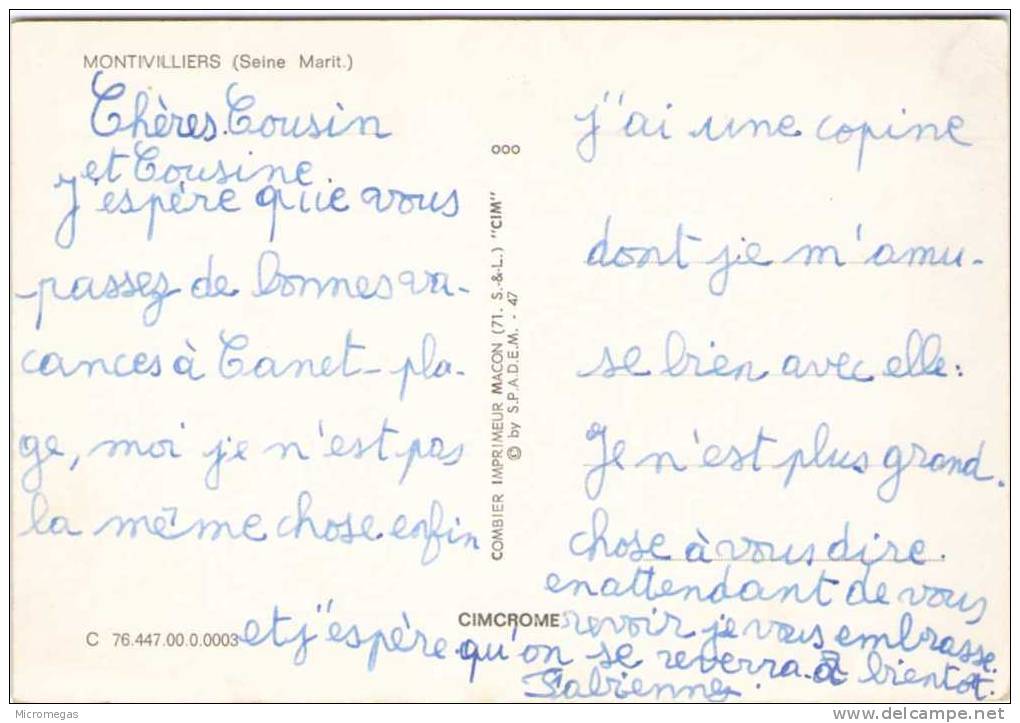 MONTIVILLIERS (Seine Marit.)
Chères Cousin
et Cousine
J'espère que vous
passez de bonnes va-
cances à Canet-pla-
ge, moi je n'est pas
la même chose enfin
j"ai une copine
dont je m'amu-
se bien avec elle.
Je n'est plus grand.
chose à vous dire.
en attendant de vous
revoir je vous embrasse.
et j"espère qu'on se reverra à bientot.
Fabienne.
ooo
COMBIER IMPRIMEUR MACON (71. S.-&-L.) "CIM"
© by S.P.A.D.E.M. - 47
CIMCROME
C 76.447.00.0.0003
Micromegas
delcampe.net